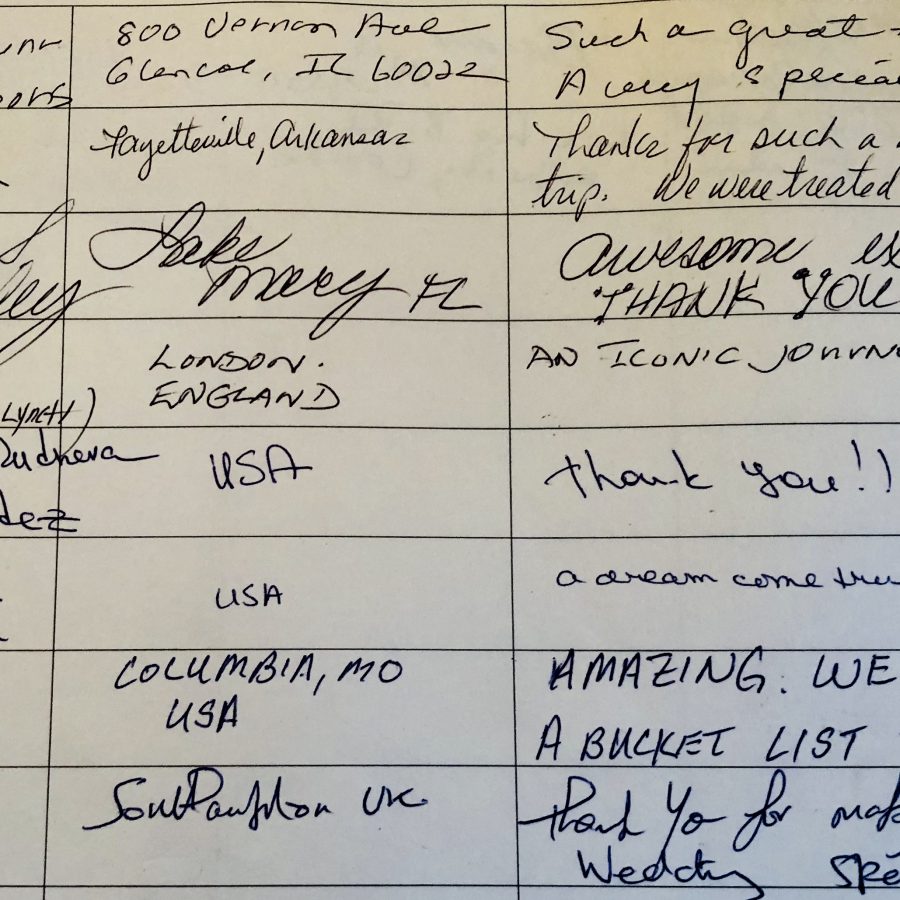 800 Vernon Ave
Such a great
Glencoe, IL 60022
A very special
Fayetteville, Arkansas
Thanks for such a
trip. We were treated
Lake
Mary FL
awesome ex
THANK YOU
LONDON.
ENGLAND
AN ICONIC JOURN
LYNCH)
USA
thank you!!
dez
USA
a dream come tru
COLUMBIA, MO
USA
AMAZING. WE
A BUCKET LIST
Southampton UK
Thank You for mak
Wedding Spe